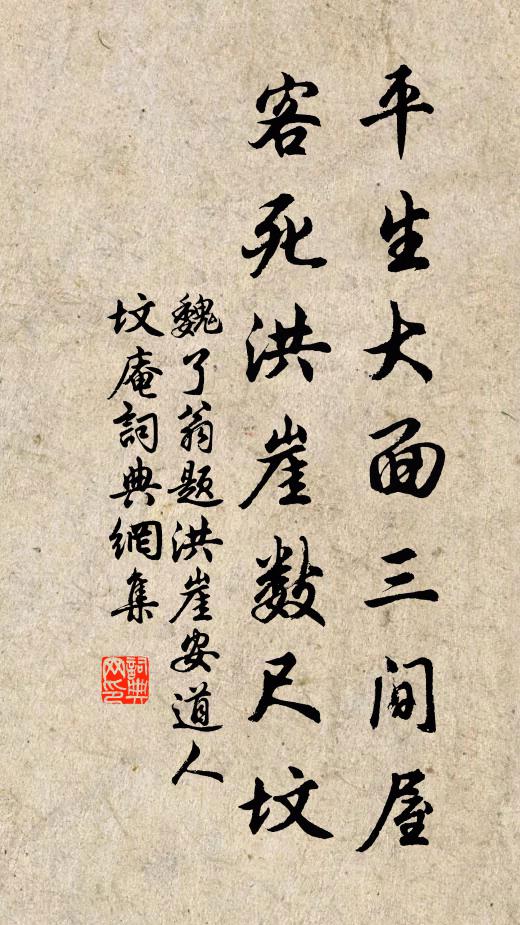 平生大面三间屋
客死洪崖数尺坟
魏了翁题洪崖安道人
坟庵詞典網集
詞典网印